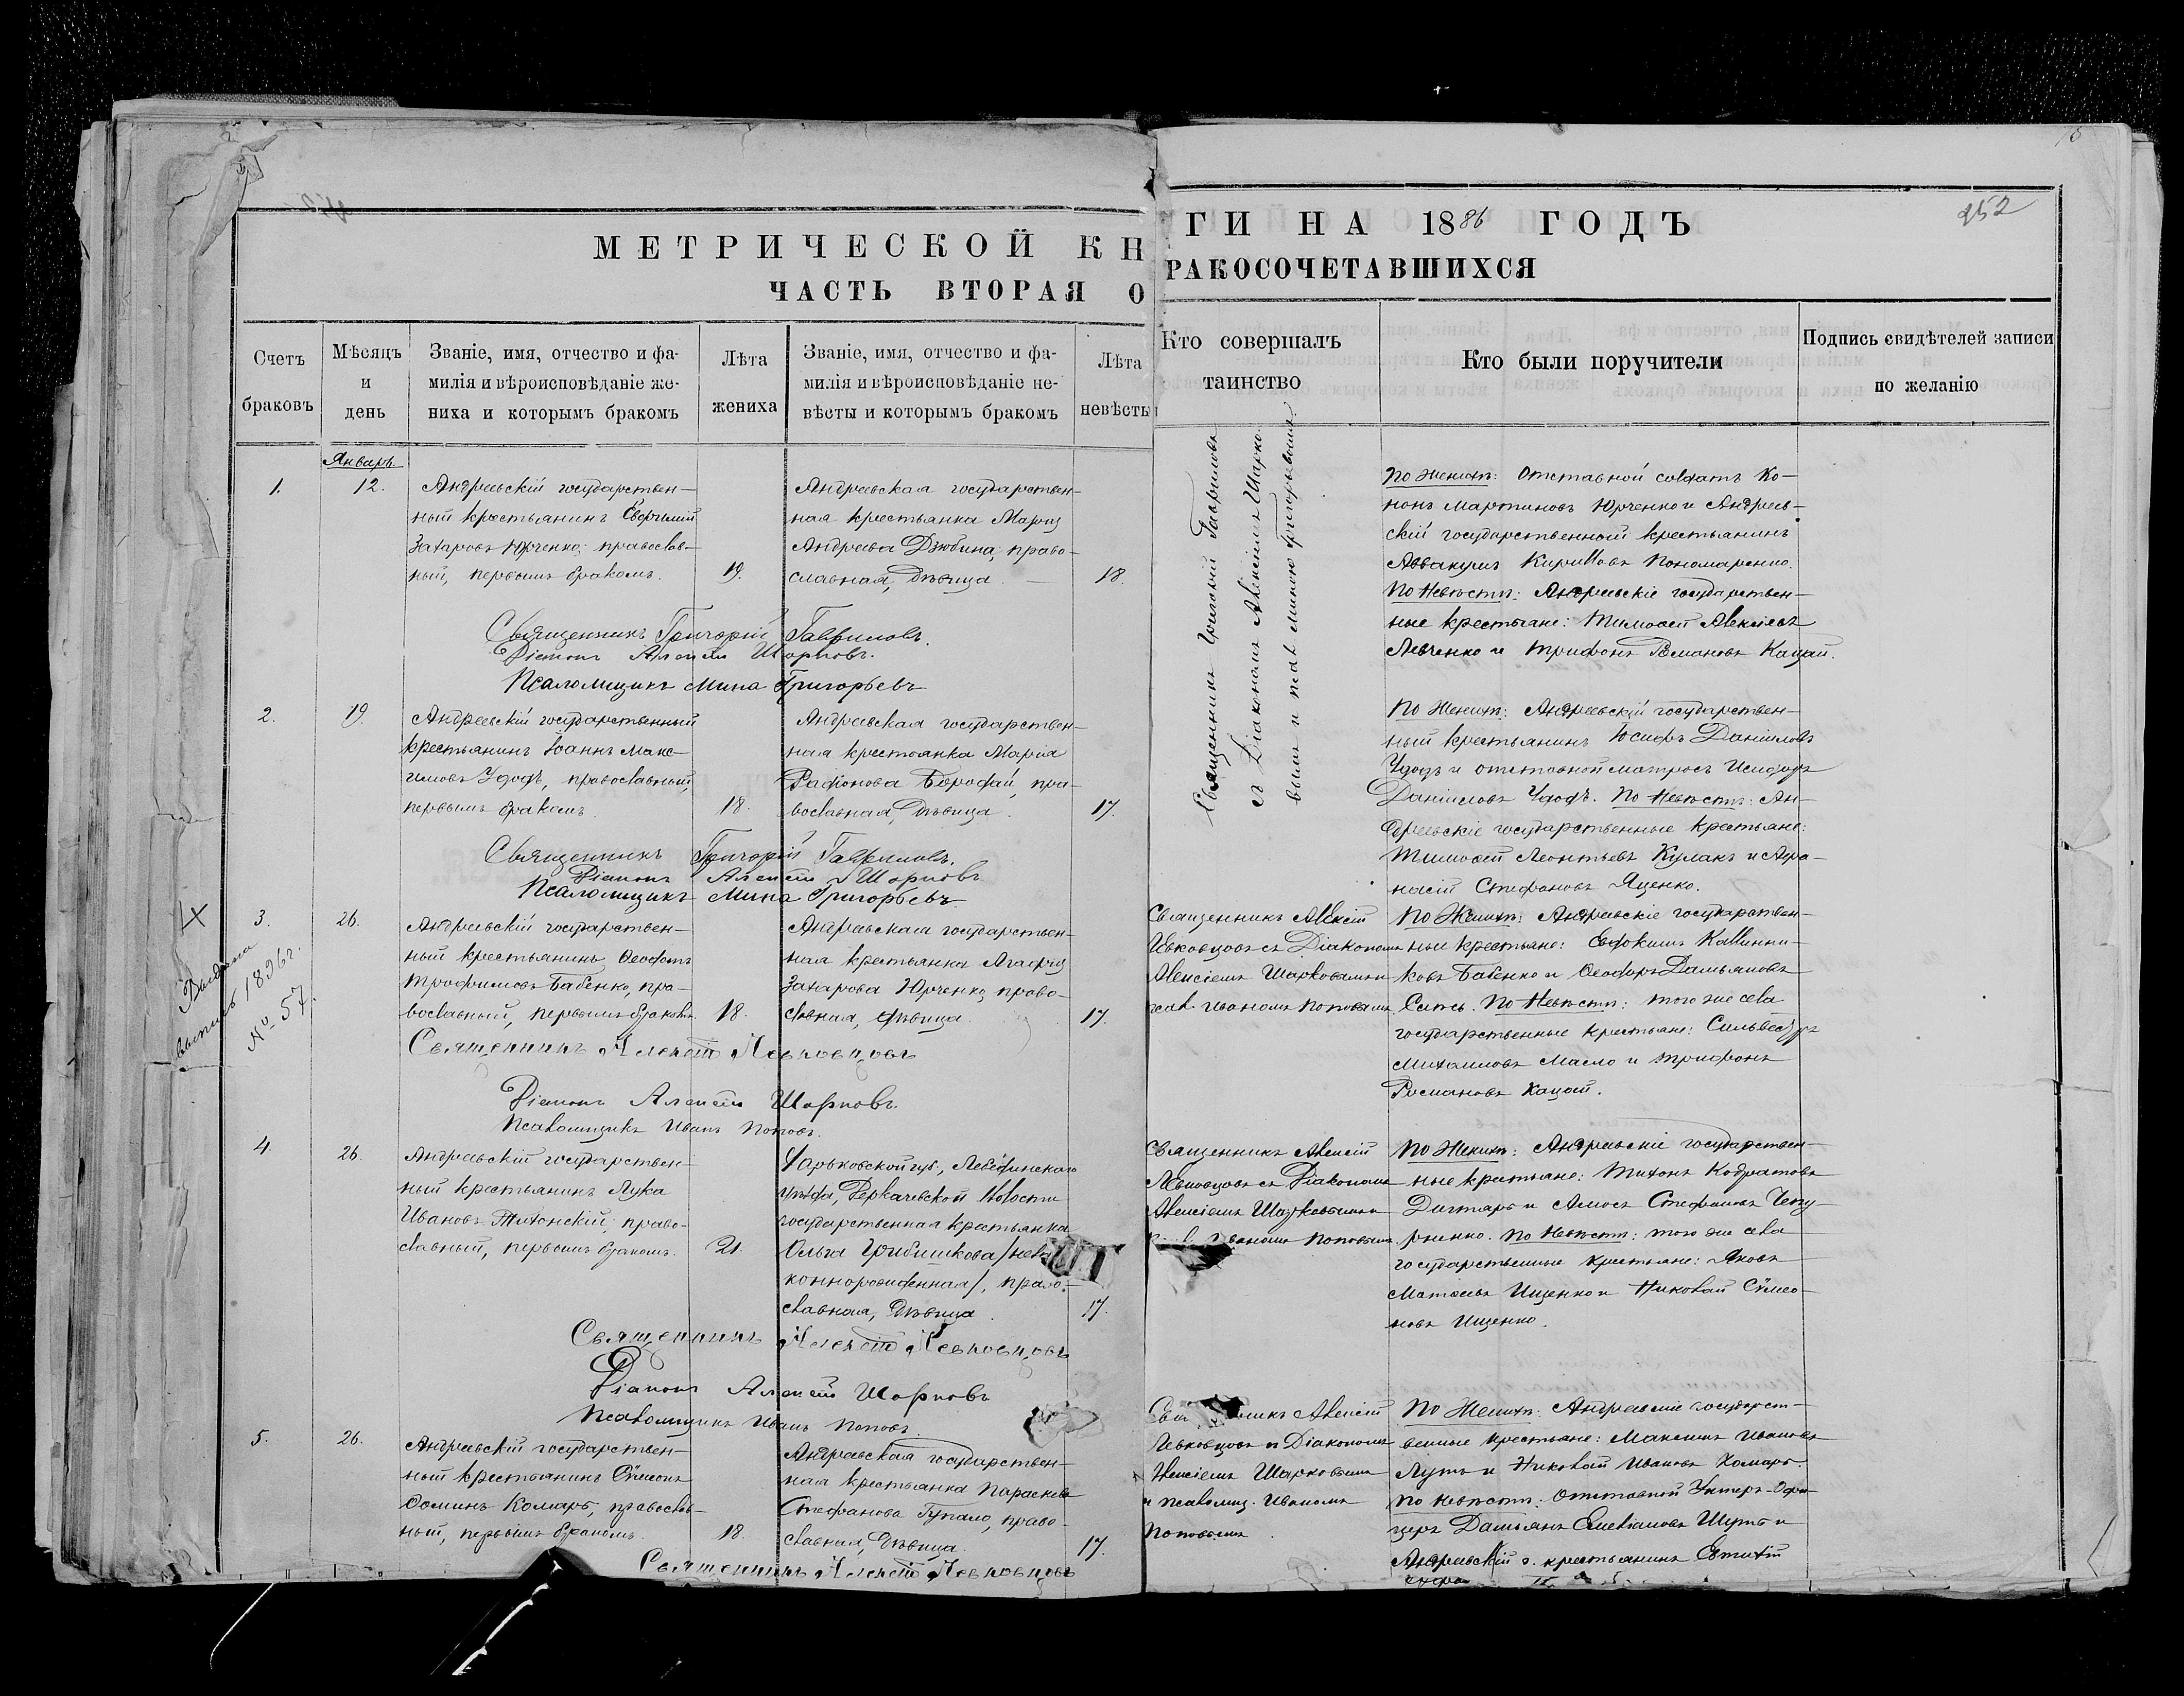 252
МЕТРИЧЕСКОЙ КН ГИ НА 1886 ГОДЪ
ЧАСТЬ ВТОРАЯ О РАКОСОЧЕТАВШИХСЯ
Счетъ браковъ
Мѣсяцъ и день
Званіе, имя, отчество и фа-
милія и вѣроисповѣданіе же-
ниха и которымъ бракомъ
Лѣта жениха
Званіе, имя, отчество и фа-
милія и вѣроисповѣданіе не-
вѣсты и которымъ бракомъ
Лѣта невѣсты
Кто совершалъ
таинство
Кто были поручители
Подпись свидѣтелей записи
по желанію
Январь.
1.
12.
Андреевскій государствен-
ный крестьянинъ Евфимій
Захаровъ Юрченко, православ-
ный, первымъ бракомъ.
19.
Андреевская государствен-
ная крестьянка Марія
Андреева Дзюбина, право-
славная, дѣвица.
18.
Священникъ Григорій Гавриловъ
съ Діакономъ Алексіемъ Шарко-
вымъ и псал. Миною Григорьевымъ
По Женихѣ: Отставной солдатъ Ко-
нонъ Мартиновъ Юрченко и Андреев-
скій государственный крестьянинъ
Аввакумъ Кирилловъ Пономаренко.
По Невѣстѣ: Андреевскіе государствен-
ные крестьяне: Тимофей Алексѣевъ
Левченко и Трифонъ Романовъ Кацай.
Священникъ Григорій Гавриловъ.
Діаконъ Алексій Шарковъ.
Псаломщикъ Мина Григорьевъ
2.
19.
Андреевскій государственный
крестьянинъ Іоаннъ Макс-
имовъ Удодъ, православный,
первымъ бракомъ.
18.
Андреевская государствен-
ная крестьянка Марія
Радіонова Бородай, пра-
вославная, дѣвица.
17.
По Женихѣ: Андреевскій государствен-
ный крестьянинъ Іосифъ Даніиловъ
Удодъ и отставной матросъ Исидоръ
Даніиловъ Удодъ. По Невѣстѣ: Ан-
дреевскіе государственные крестьяне:
Тимофей Леонтьевъ Кулакъ и Афа-
насій Стефановъ Яценко.
Священникъ Григорій Гавриловъ.
Діаконъ Алексій Шарковъ
Псаломщикъ Мина Григорьевъ
Выдана
выпись 1896 г.
№ 57.
3.
26.
Андреевскій государствен-
ный крестьянинъ Ѳеофанъ
Трофимовъ Бабенко, пра-
вославный, первымъ бракомъ
18.
Андреевская государствен-
ная крестьянка Агафія
Захарова Юрченко, право-
славная, дѣвица.
17.
Священникъ Алексій
Левковцовъ съ Діакономъ
Алексіемъ Шарковымъ и
псал. Иваномъ Поповымъ
По Женихѣ: Андреевскіе государствен-
ные крестьяне: Евдокимъ Каллини-
ковъ Бабенко и Ѳеодоръ Даміановъ
По Невѣстѣ: того же села
государственные крестьяне: Сильвестръ
Михаиловъ Масло и Трифонъ
Романовъ Кацай.
Священникъ Алексій Левковцовъ
Діаконъ Алексій Шарковъ.
Псаломщикъ Иванъ Поповъ.
4.
26.
Андреевскій государствен-
ный крестьянинъ Лука
Ивановъ Тихонскій, право-
славный, первымъ бракомъ.
21.
Харьковской губ., Лебединскаго
уѣзда, Деркачевской волости
государственная крестьянка
Ольга Грибишкова /неза
коннорожденная/, право-
славная, дѣвица.
17.
Священникъ Алексій
Левковцовъ съ Діакономъ
Алексіемъ Шарковымъ и
Иваномъ Поповымъ.
По Женихѣ: Андреевскіе государствен-
ные крестьяне: Тихонъ Кодратовъ
Дегтярь и Амосъ Стефановъ Чепу-
рненко. По Невѣстѣ: того же села
государственные крестьяне: Яковъ
Матѳеевъ Ищенко и Николай Сѵмео-
новъ Ищенко.
Священникъ Алексій Левковцовъ
Діаконъ Алексій Шарковъ
Псаломщикъ Иванъ Поповъ.
5.
26.
Андреевскій государствен-
ный крестьянинъ Сѵмеонъ
Ѳоминъ Комаръ, православ-
ный, первымъ бракомъ.
18.
Андреевская государствен-
ная крестьянка Параскева
Стефанова Гупало, право-
славная, дѣвица.
17.
Алексій
Левковцовъ съ Діакономъ
Алексіемъ Шарковымъ
и псаломщ. Иваномъ
Поповымъ.
По Женихѣ: Андреевскіе государст-
венные крестьяне: Максимъ Ивановъ
Лутъ и Николай Ивановъ Комаръ.
По Невѣстѣ: Отставной Унтеръ-Офи-
церъ Даміанъ Емеліановъ Шутъ и
Андреевскій г. крестьянинъ Евтихій
Священникъ Алексій Левковцовъ